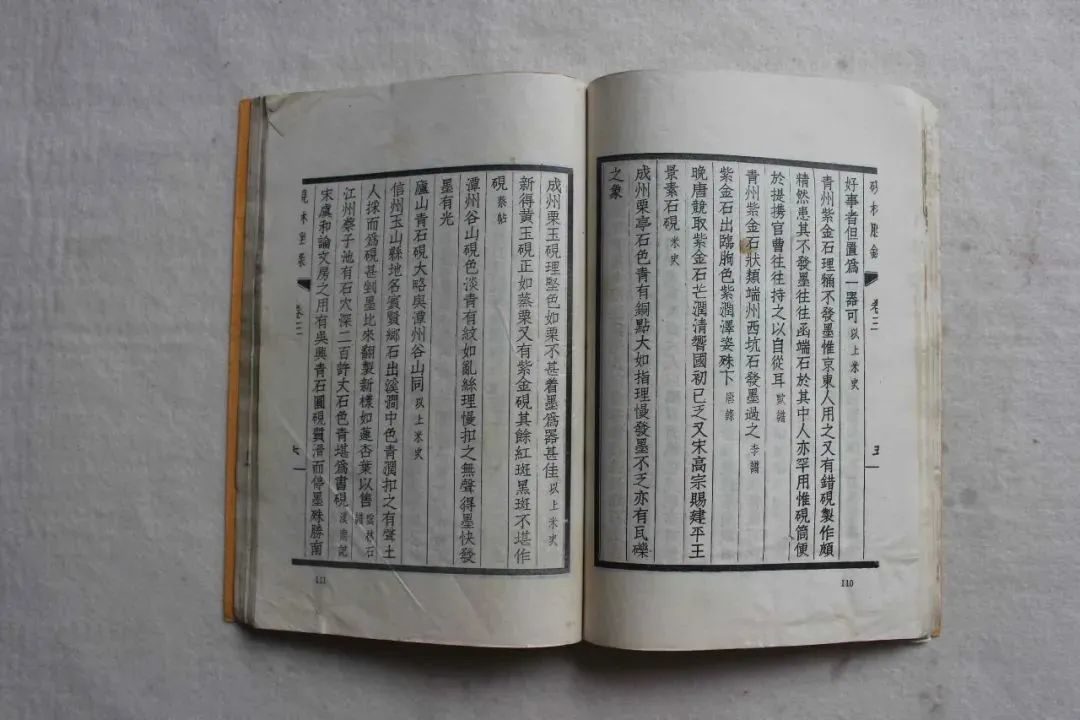 硯林脞錄 卷三 五
好事者但置爲一器可 以上米史
青州紫金石理麤不發墨惟京東人用之又有錯硯製作頗
精然患其不發墨往往函端石於其中人亦罕用惟硯筒便
於提攜官曹往往持之以自從耳 歐譜
青州紫金石狀類端州西坑石發墨過之 李譜
紫金石出臨朐色紫潤澤姿殊下 唐錄
晚唐競取紫金石芒潤清響國初已乏又宋高宗賜建平王
景素石硯 米史
成州栗亭石色青有銅點大如指理慢發墨不乏亦有瓦礫
之象
110
成州栗玉硯理堅色如栗不甚着墨爲器甚佳 以上米史
新得黃玉硯正如蒸栗又有紫金硯其餘紅斑黑斑不堪作
硯 蔡帖
潭州谷山硯色淡青有紋如亂絲理慢扣之無聲得墨快發
墨有光
廬山青石硯大略與潭州谷山同 以上米史
信州玉山縣地名賓賢鄉石出溪澗中色青潤扣之有聲土
人採而爲硯甚剉墨比來翻製新樣如蓮杏葉以售 雲林石譜
江州蔡子池有石穴深二百許丈石色青堪爲書硯
宋虞和論文房之用有吳興青石圓硯質滑而停墨殊勝南
硯林脞錄 卷三 六
111